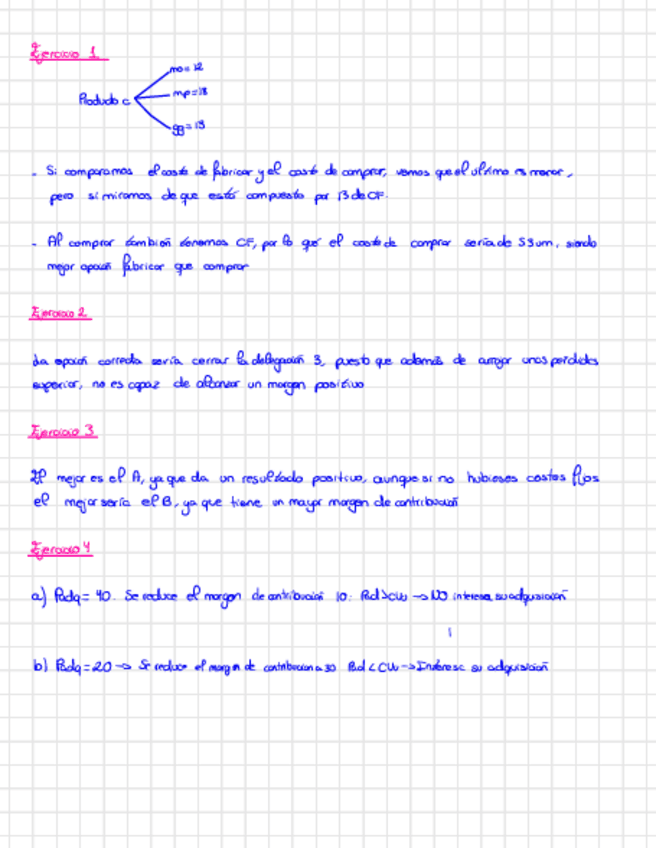 Ejercicio 1
mo = 12
Producto c
mp = 18
gg = 13
- Si comparamos el coste de fabricar y el coste de comprar, vemos que el último es menor,
pero si miramos de que está compuesto por 13 de CF.
- Al comprar también tenemos CF, por lo que el coste de comprar sería de 53 um, siendo
mejor opción fabricar que comprar
Ejercicio 2
La opción correcta sería cerrar la delegación 3, puesto que además de arrojar unas perdidas
superior, no es capaz de alcanzar un margen positivo
Ejercicio 3
El mejor es el A, ya que da un resultado positivo, aunque si no hubieses costes fijos
el mejor sería el B, ya que tiene un mayor margen de contribución
Ejercicio 4
a) Padq = 40. Se reduce el margen de contribución 10. > → NO interesa su adquisición
b) Padq = 20 → Se reduce el margen de contribucion a 30 < → Interesa su adquisición